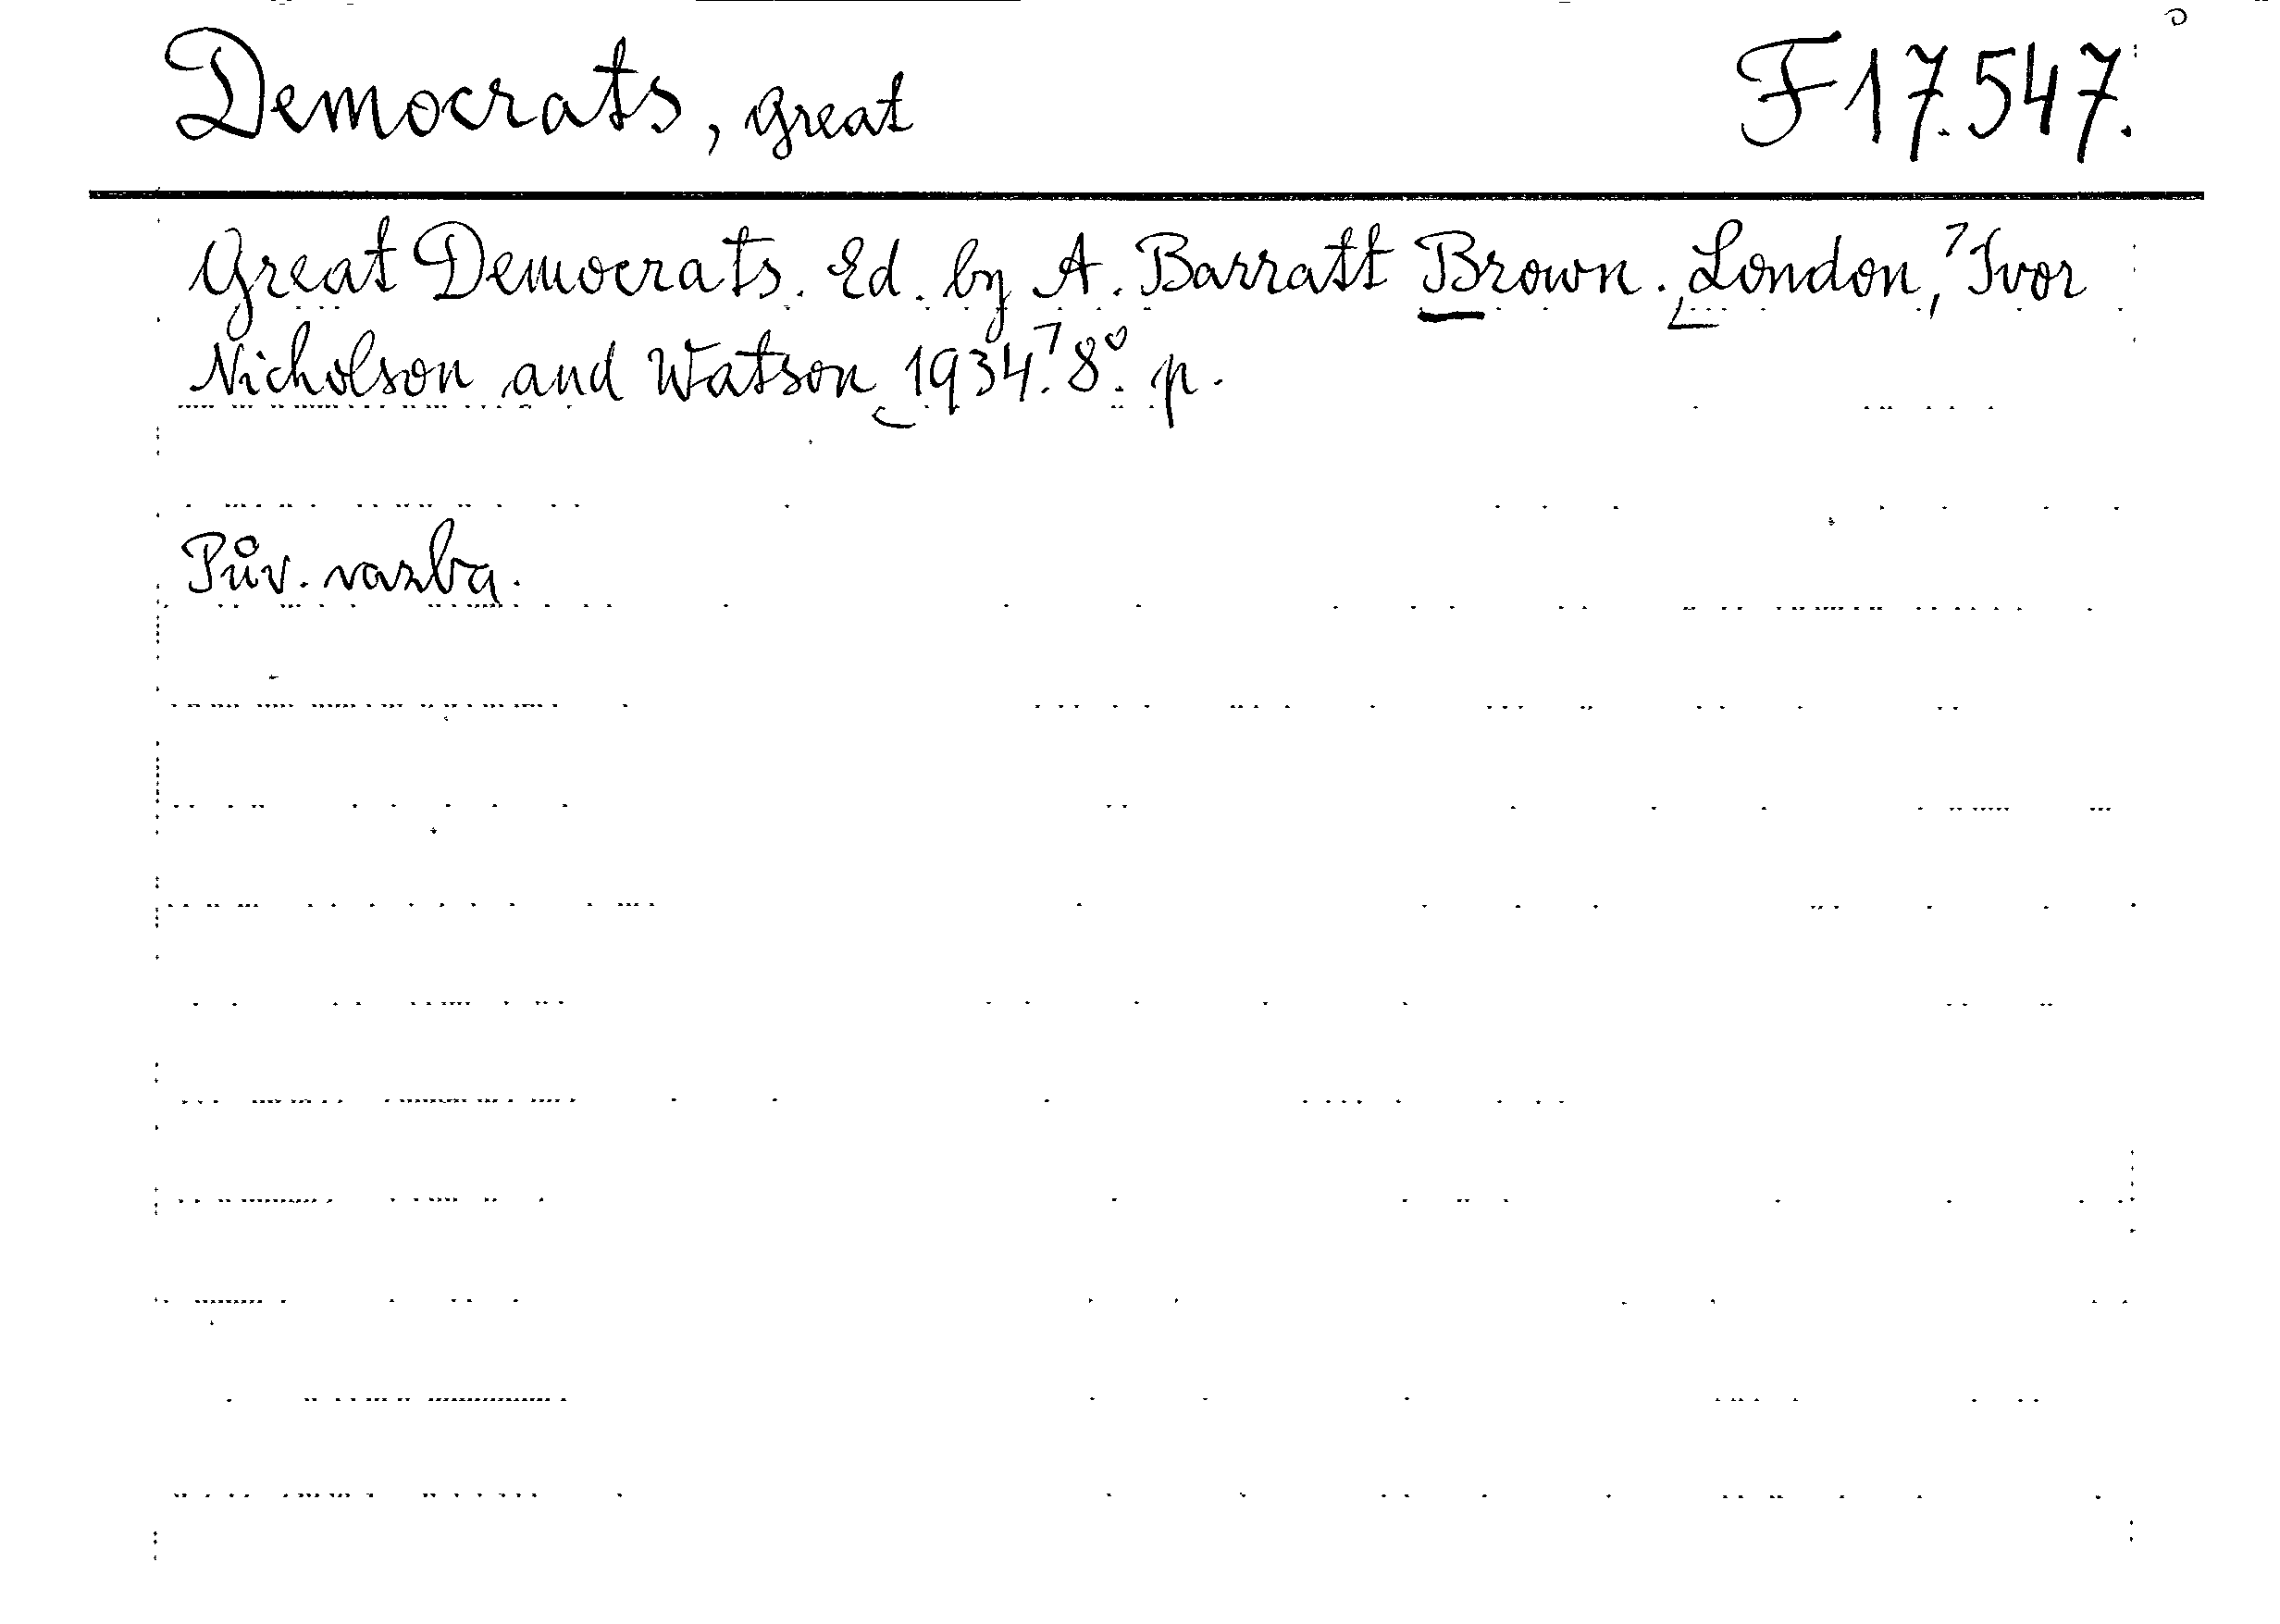 Democrats, great F 17.547.
Great Democrats. Ed. by A. Barratt Brown. London, Ivor
Nicholson and Watson 1934. 8°. p.
Pův. vazba.